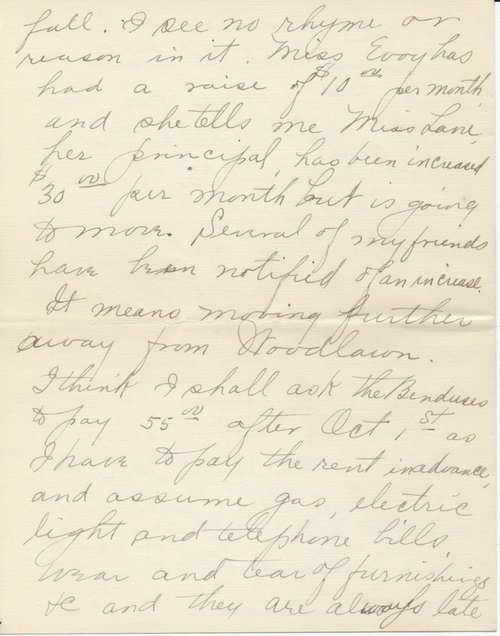 fall. I see no rhyme or
reason in it. Miss Evoy has
had a raise of $10 00 per month
and she tells me Miss Lane,
her principal, has been increased
$30 00 per month but is going
to move. Several of my friends
have been notified of an increase.
It means moving further
away from Woodlawn.
I think I shall ask the Benduses
to pay 55 00 after Oct 1st as
I have to pay the rent in advance,
and assume gas, electric
light and telephone bills,
wear and tear of furnishings
&c and they are always late